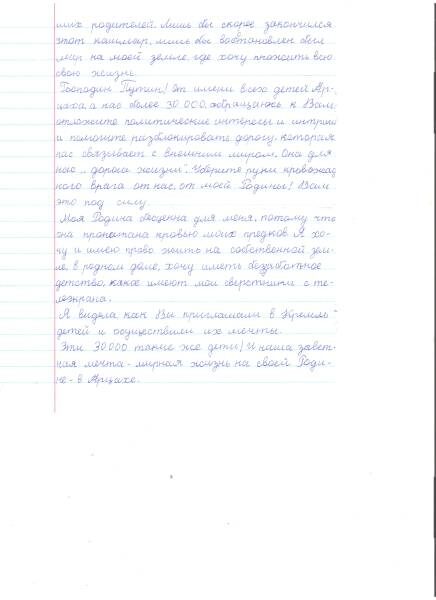 ших родителей. Лишь бы скорее закончился
этот кашмар, лишь бы востановлен был
мир на моей земле, где хочу прожить всю
свою жизнь.
Господин Путин! От имени всех детей Ар-
цаха, а нас более 30 000, обращаюсь к Вам:
отложите политические интересы и интриги
и помогите разблокировать дорогу, которая
нас связывает с внешним миром. Она для
нас „дорога жизни". Уберите руки кровожад
ного врага от нас, от моей Родины! Вам
это под силу.
Моя Родина бесценна для меня, потому что
она пропитана кровью моих предков. Я хо-
чу и имею право жить на собственной зем-
ле, в родном доме, хочу иметь беззаботное
детство, какое имеют мои сверстники с те-
леэкрана.
Я видела как Вы приглашали в Кремль
детей и осуществили их мечты.
Эти 30000 такие же дети! И наша завет-
ная мечта - мирная жизнь на своей Роди-
не - в Арцахе.